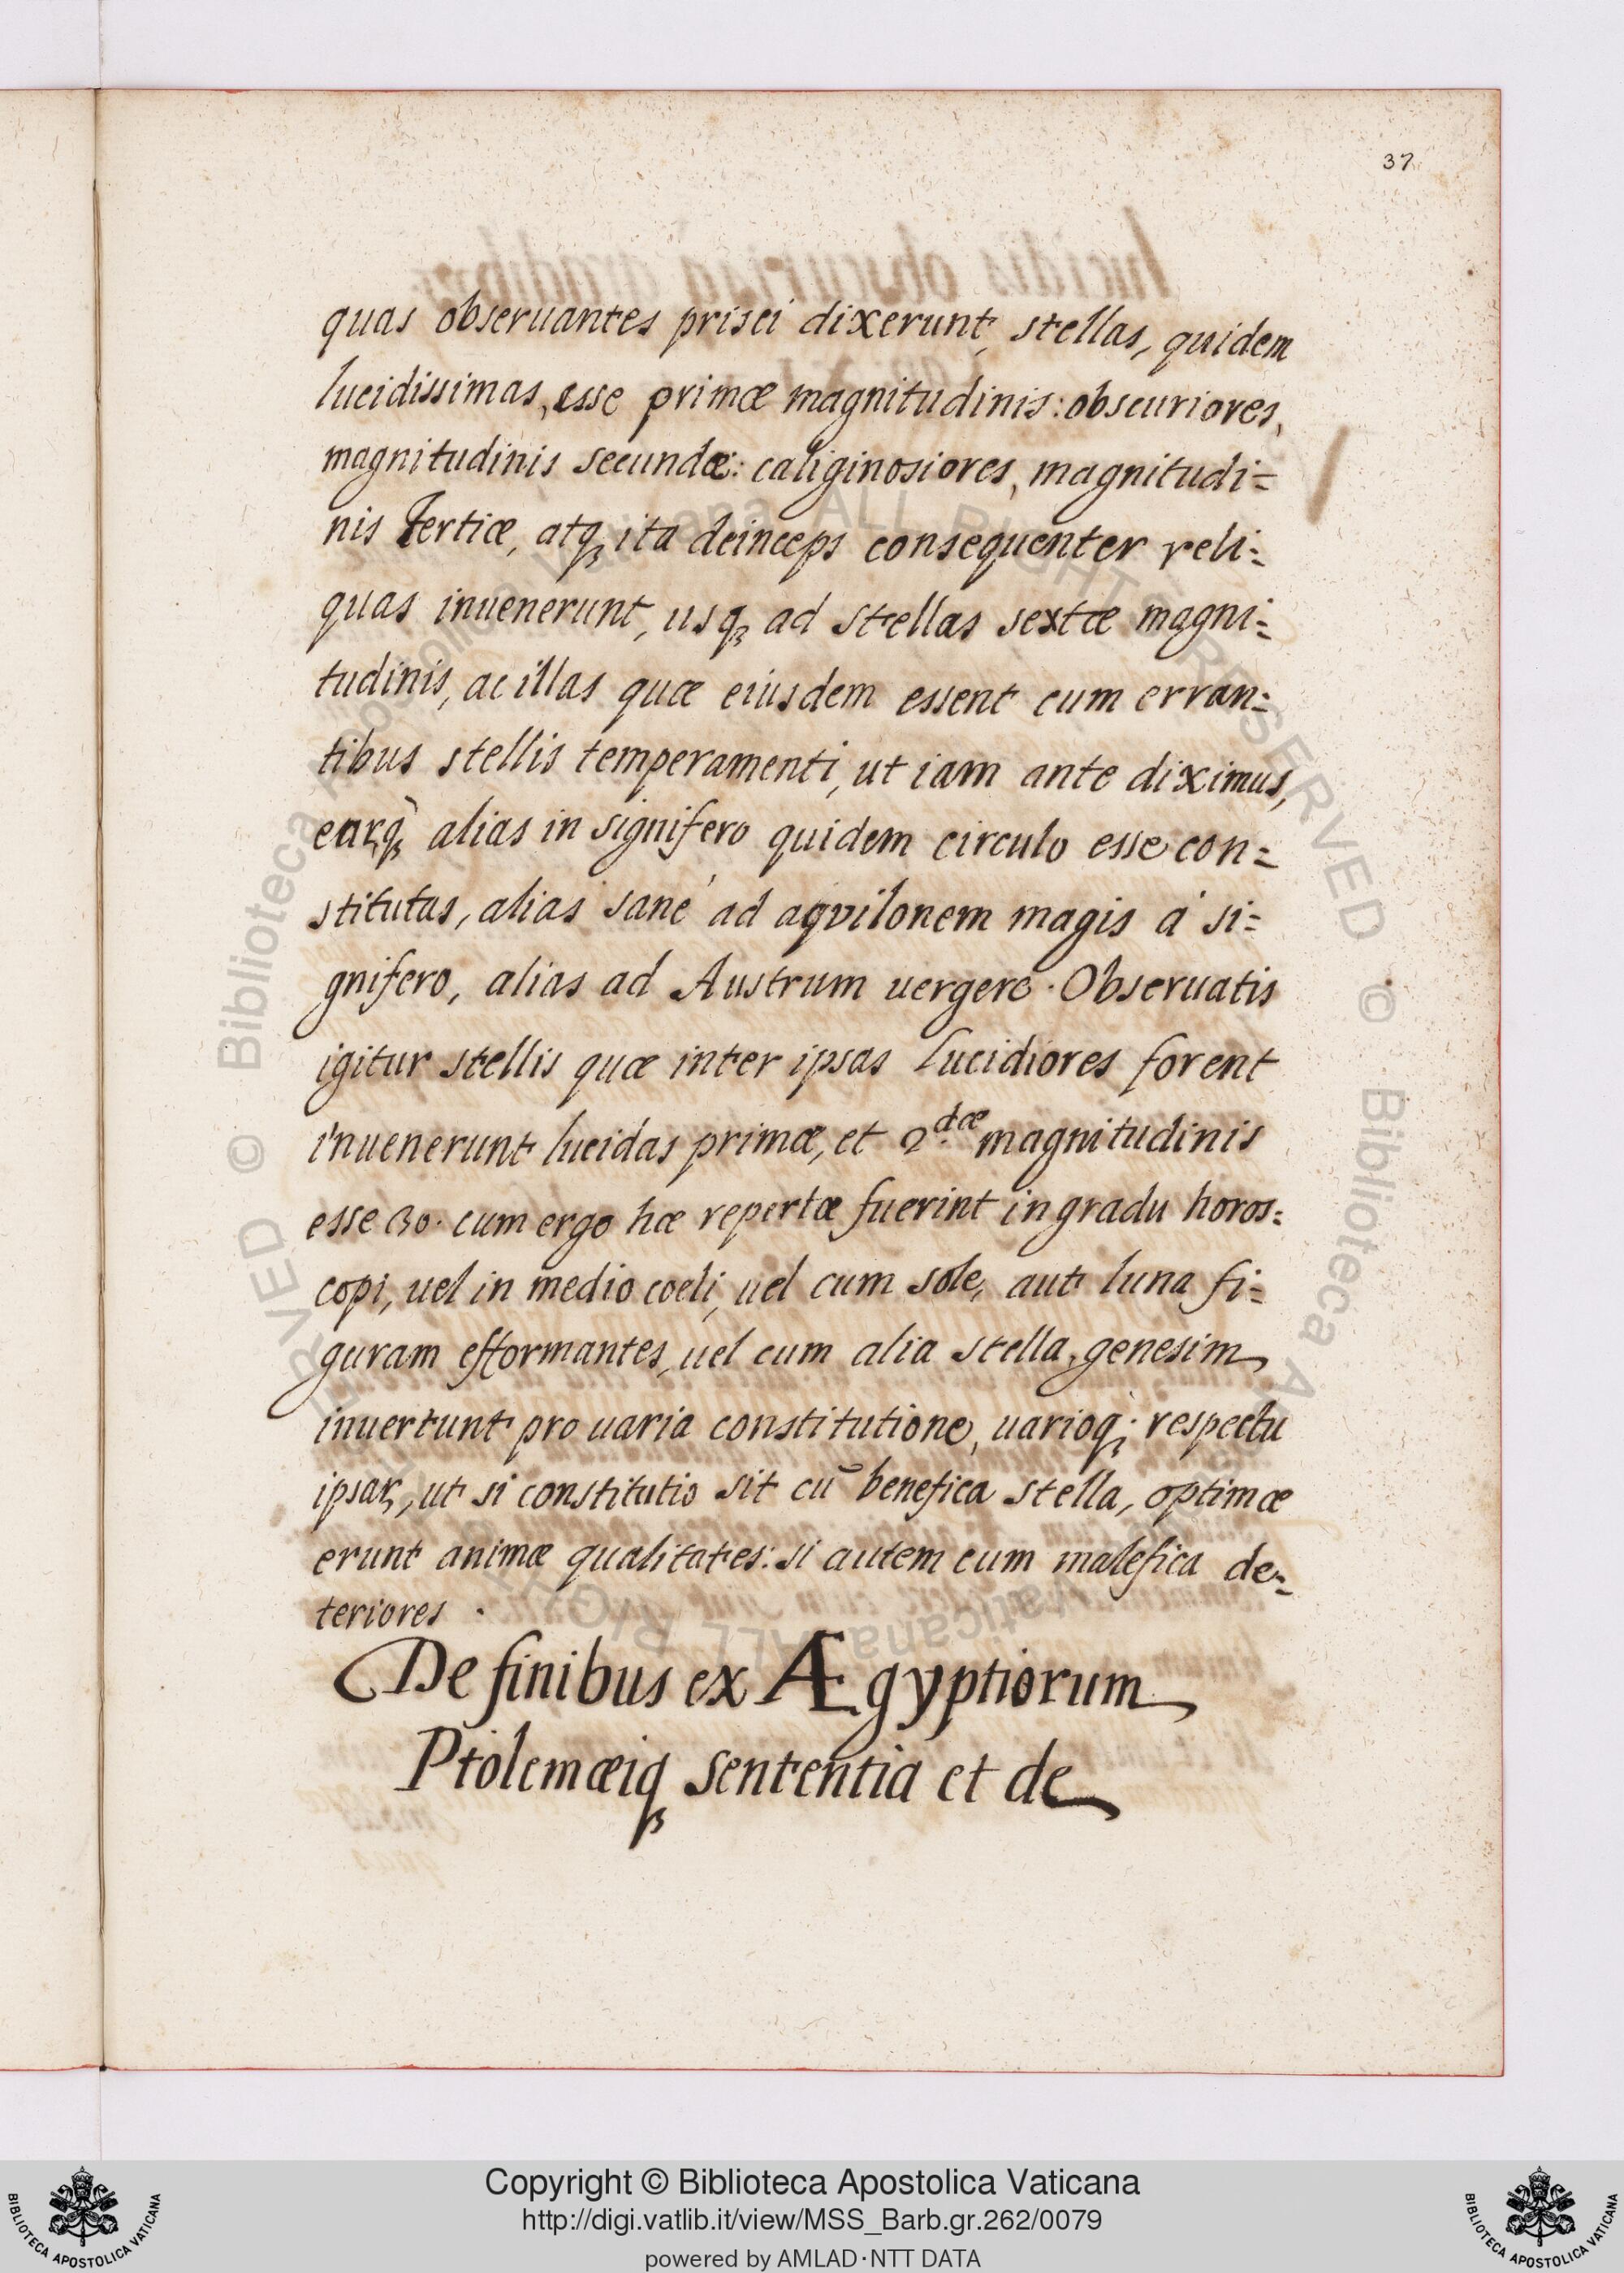 37
quas obseruantes prisci dixerunt, stellas, quidem
lucidissimas, esse primæ magnitudinis: obscuriores,
magnitudinis secundæ: caliginosiores, magnitudi=
nis Tertiæ, atqꝫ ita deinceps consequenter reli=
quas inuenerunt, usqꝫ ad stellas sextæ magni=
tudinis, ac illas quæ eiusdem essent cum erran=
tibus stellis temperamenti, ut iam ante diximus,
earꝝqꝫ alias in signifero quidem circulo esse con=
stitutas, alias sané ad aqvilonem magis á si=
gnifero, alias ad Austrum uergere. Obseruatis
igitur stellis quæ inter ipsas lucidiores forent
inuenerunt lucidas primæ, et 2.dæ magnitudinis
esse 30. cum ergo hæ repertæ fuerint in gradu horos=
copi, uel in medio coeli, uel cum sole, aut luna fi=
guram efformantes, uel cum alia stella, genesim
inuertunt pro uaria constitutione, uarioqꝫ respectu
ipsaꝝ, ut si constitutio sit cū benefica stella, optimæ
erunt animæ qualitates: si autem cum malefica de=
teriores.
De finibus ex Ægyptiorum
Ptolemæiqꝫ sententia et de
Copyright © Biblioteca Apostolica Vaticana
http://digi.vatlib.it/view/MSS_Barb.gr.262/0079
powered by AMLAD·NTT DATA
BIBLIOTECA APOSTOLICA VATICANA
BIBLIOTECA APOSTOLICA VATICANA